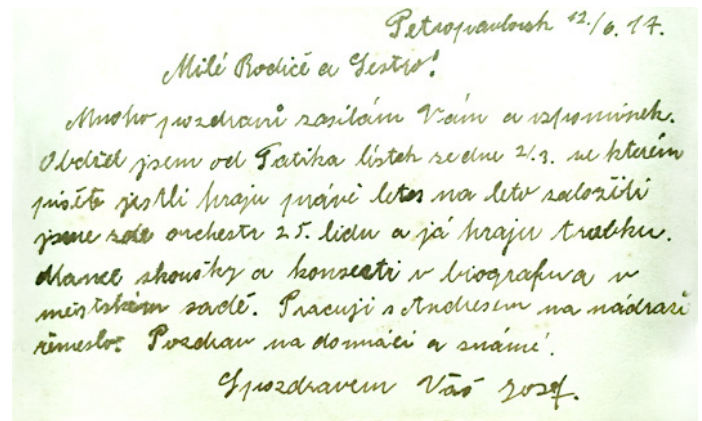 Petropavlovsk 12./6. 17.
Milé Rodiče a Sestro!
Mnoho pozdravů zasílám Vám a vzpomínek.
Obdržel jsem od Tatíka lístek ze dne 2/3. ve kterém
píšete jestli hraju právě letos na leto založili
jsme zde orchestr 25. lidu a já hraju trubku.
Máme skoušky a konserti v biografu a v
městském sadě. Pracuji s Andresem na nádraží
řemeslo. Pozdrav na domácí a známé.
S pozdravem Váš Josef.